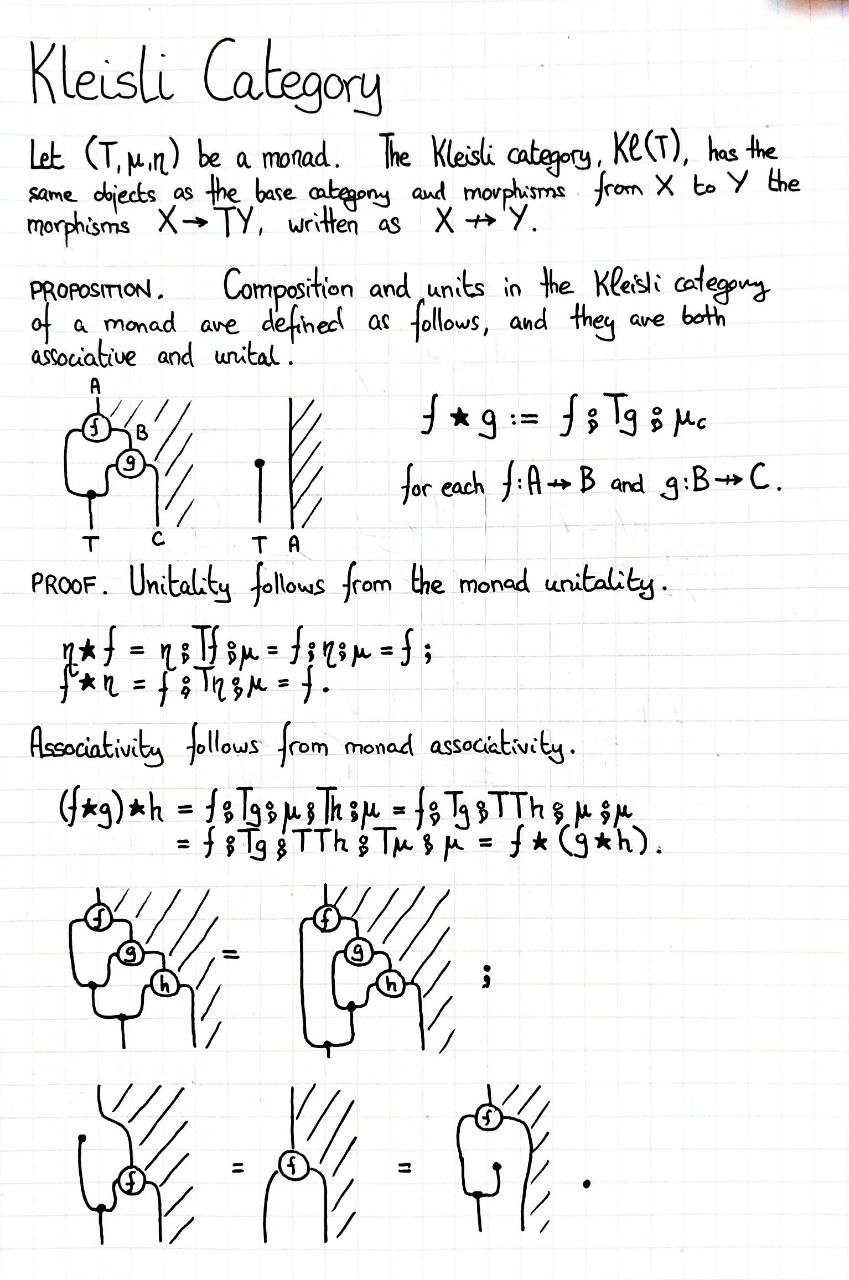 Kleisli Category
Let (T, μ, η) be a monad. The Kleisli category, Kℓ(T), has the
same objects as the base category and morphisms from X to Y the
morphisms X → TY, written as X ⇸ Y.
PROPOSITION. Composition and units in the Kleisli category
of a monad are defined as follows, and they are both
associative and unital.
A
f B
g
T C
T A
f ★ g := f ⨾ Tg ⨾ μc
for each f: A ⇸ B and g: B ⇸ C.
PROOF. Unitality follows from the monad unitality.
η ★ f = η ⨾ Tf ⨾ μ = f ⨾ η ⨾ μ = f ;
f ★ η = f ⨾ Tη ⨾ μ = f.
Associativity follows from monad associativity.
(f ★ g) ★ h = f ⨾ Tg ⨾ μ ⨾ Th ⨾ μ = f ⨾ Tg ⨾ TTh ⨾ μ ⨾ μ
= f ⨾ Tg ⨾ TTh ⨾ Tμ ⨾ μ = f ★ (g ★ h).
f g h = f g h ;
f = f = f .